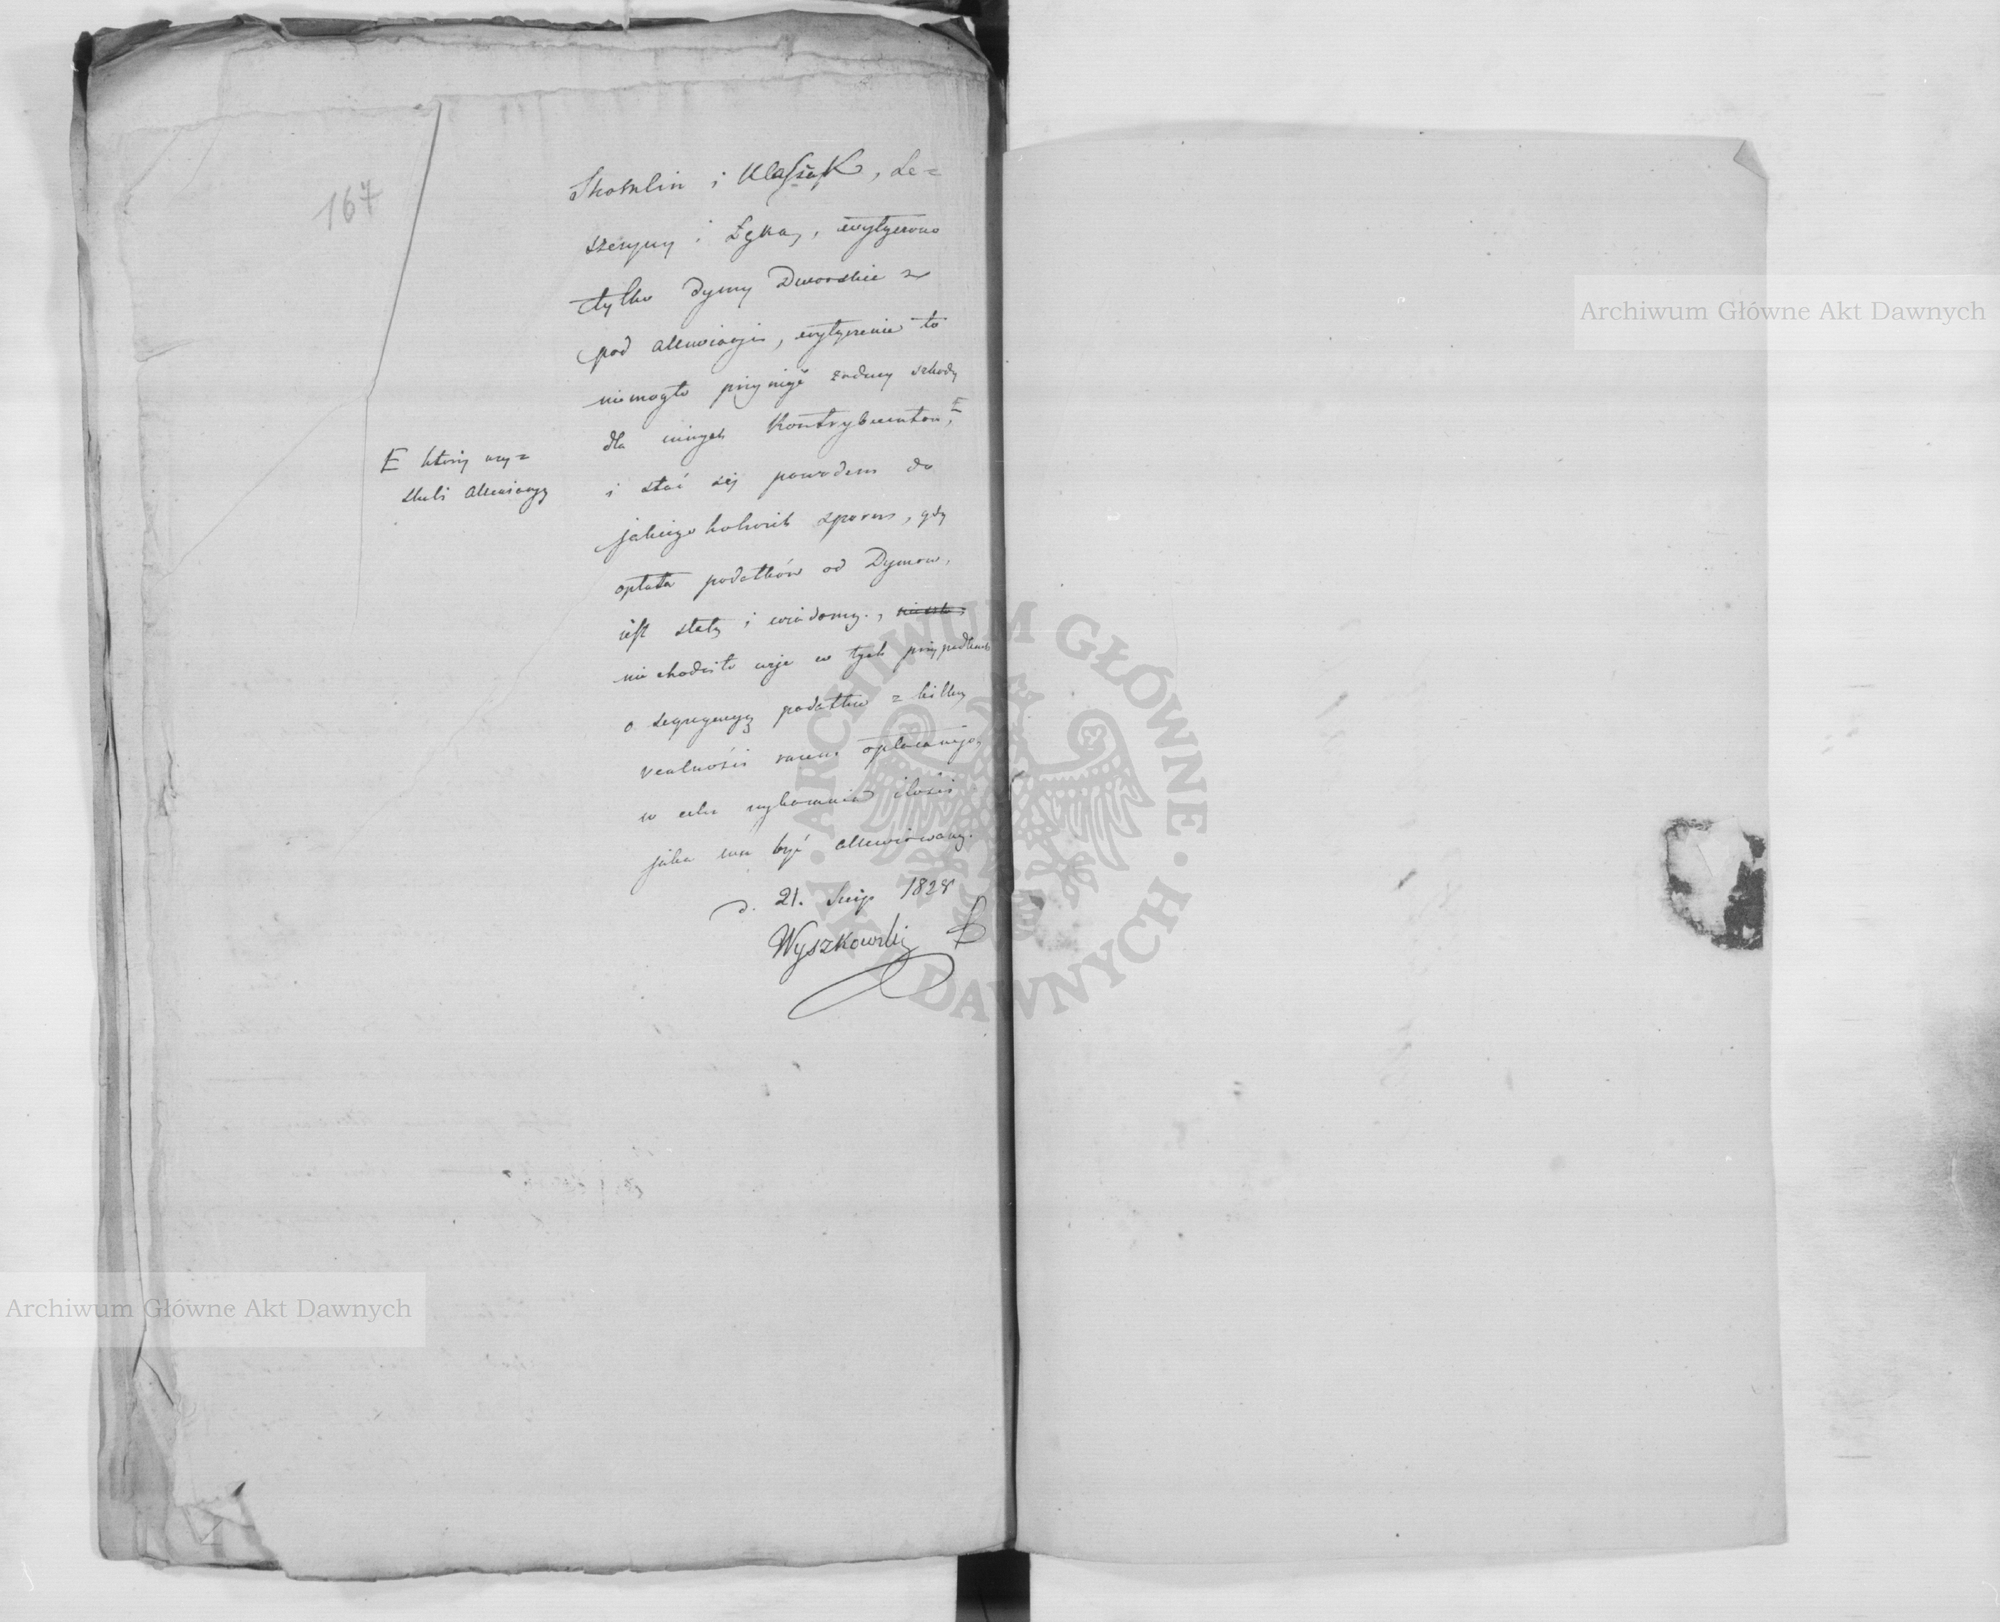 167
Skomlin i Klasak, Le=
szczyny i Łęka, wytyczono
tylko dymy Dworskie
pod allewiacyią, wytyczenie to
niemogło przynieść żadney szkody
dla innych Kontrybuentów, F
i stać się powodem do
jakiegokolwiek sporu, gdy
opłata podatków od Dymów,
iest stały i wiadomy.,
nie chodziło więc w tych przypadkach
o segregacyą podatku z kilku
realności razem opłacanego,
w celu wykazania ilości
jaka ma być allewiowaną.
d. 21. Sierp 1828
Wyszkowski
F którzy uzy=
skali Allewiacyą
Archiwum Główne Akt Dawnych
Archiwum Główne Akt Dawnych
ARCHIWUM GŁÓWNE AKT DAWNYCH